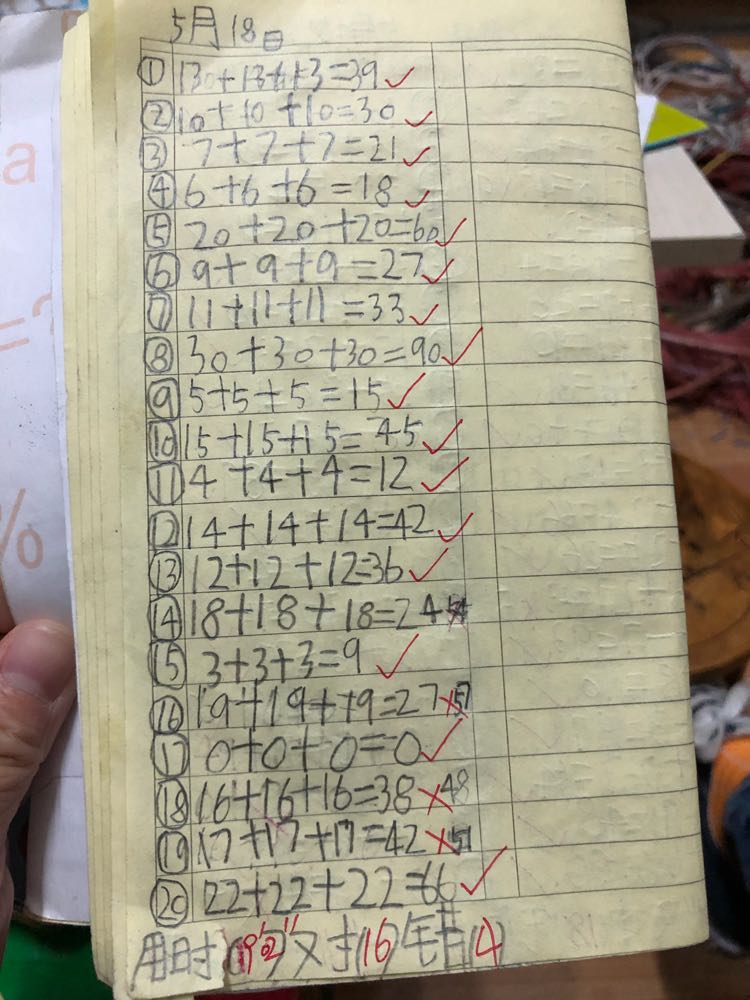 5月18日
① 13+13+13=39 ✓
② 10+10+10=30 ✓
③ 7+7+7=21 ✓
④ 6+6+6=18 ✓
⑤ 20+20+20=60 ✓
⑥ 9+9+9=27 ✓
⑦ 11+11+11=33 ✓
⑧ 30+30+30=90 ✓
⑨ 5+5+5=15 ✓
⑩ 15+15+15=45 ✓
⑪ 4+4+4=12 ✓
⑫ 14+14+14=42 ✓
⑬ 12+12+12=36 ✓
⑭ 18+18+18=24 × 54
⑮ 3+3+3=9 ✓
⑯ 19+19+19=27 × 57
⑰ 0+0+0=0 ✓
⑱ 16+16+16=38 × 48
⑲ 17+17+17=42 × 51
⑳ 22+22+22=66 ✓
用时 对(16)错(4)
a
=?
%